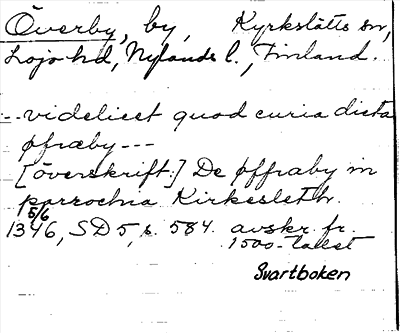 Överby, by, Kyrkslätts sn,
Lojo hd, Nylands l., Finland.
--videlicet quod curia dicta
øfræby---
[överskrift:] De øffraby in
parrochia Kirkesleth.
5/6
1346, SD 5, s. 584. avskr. fr.
1500-talet
Svartboken